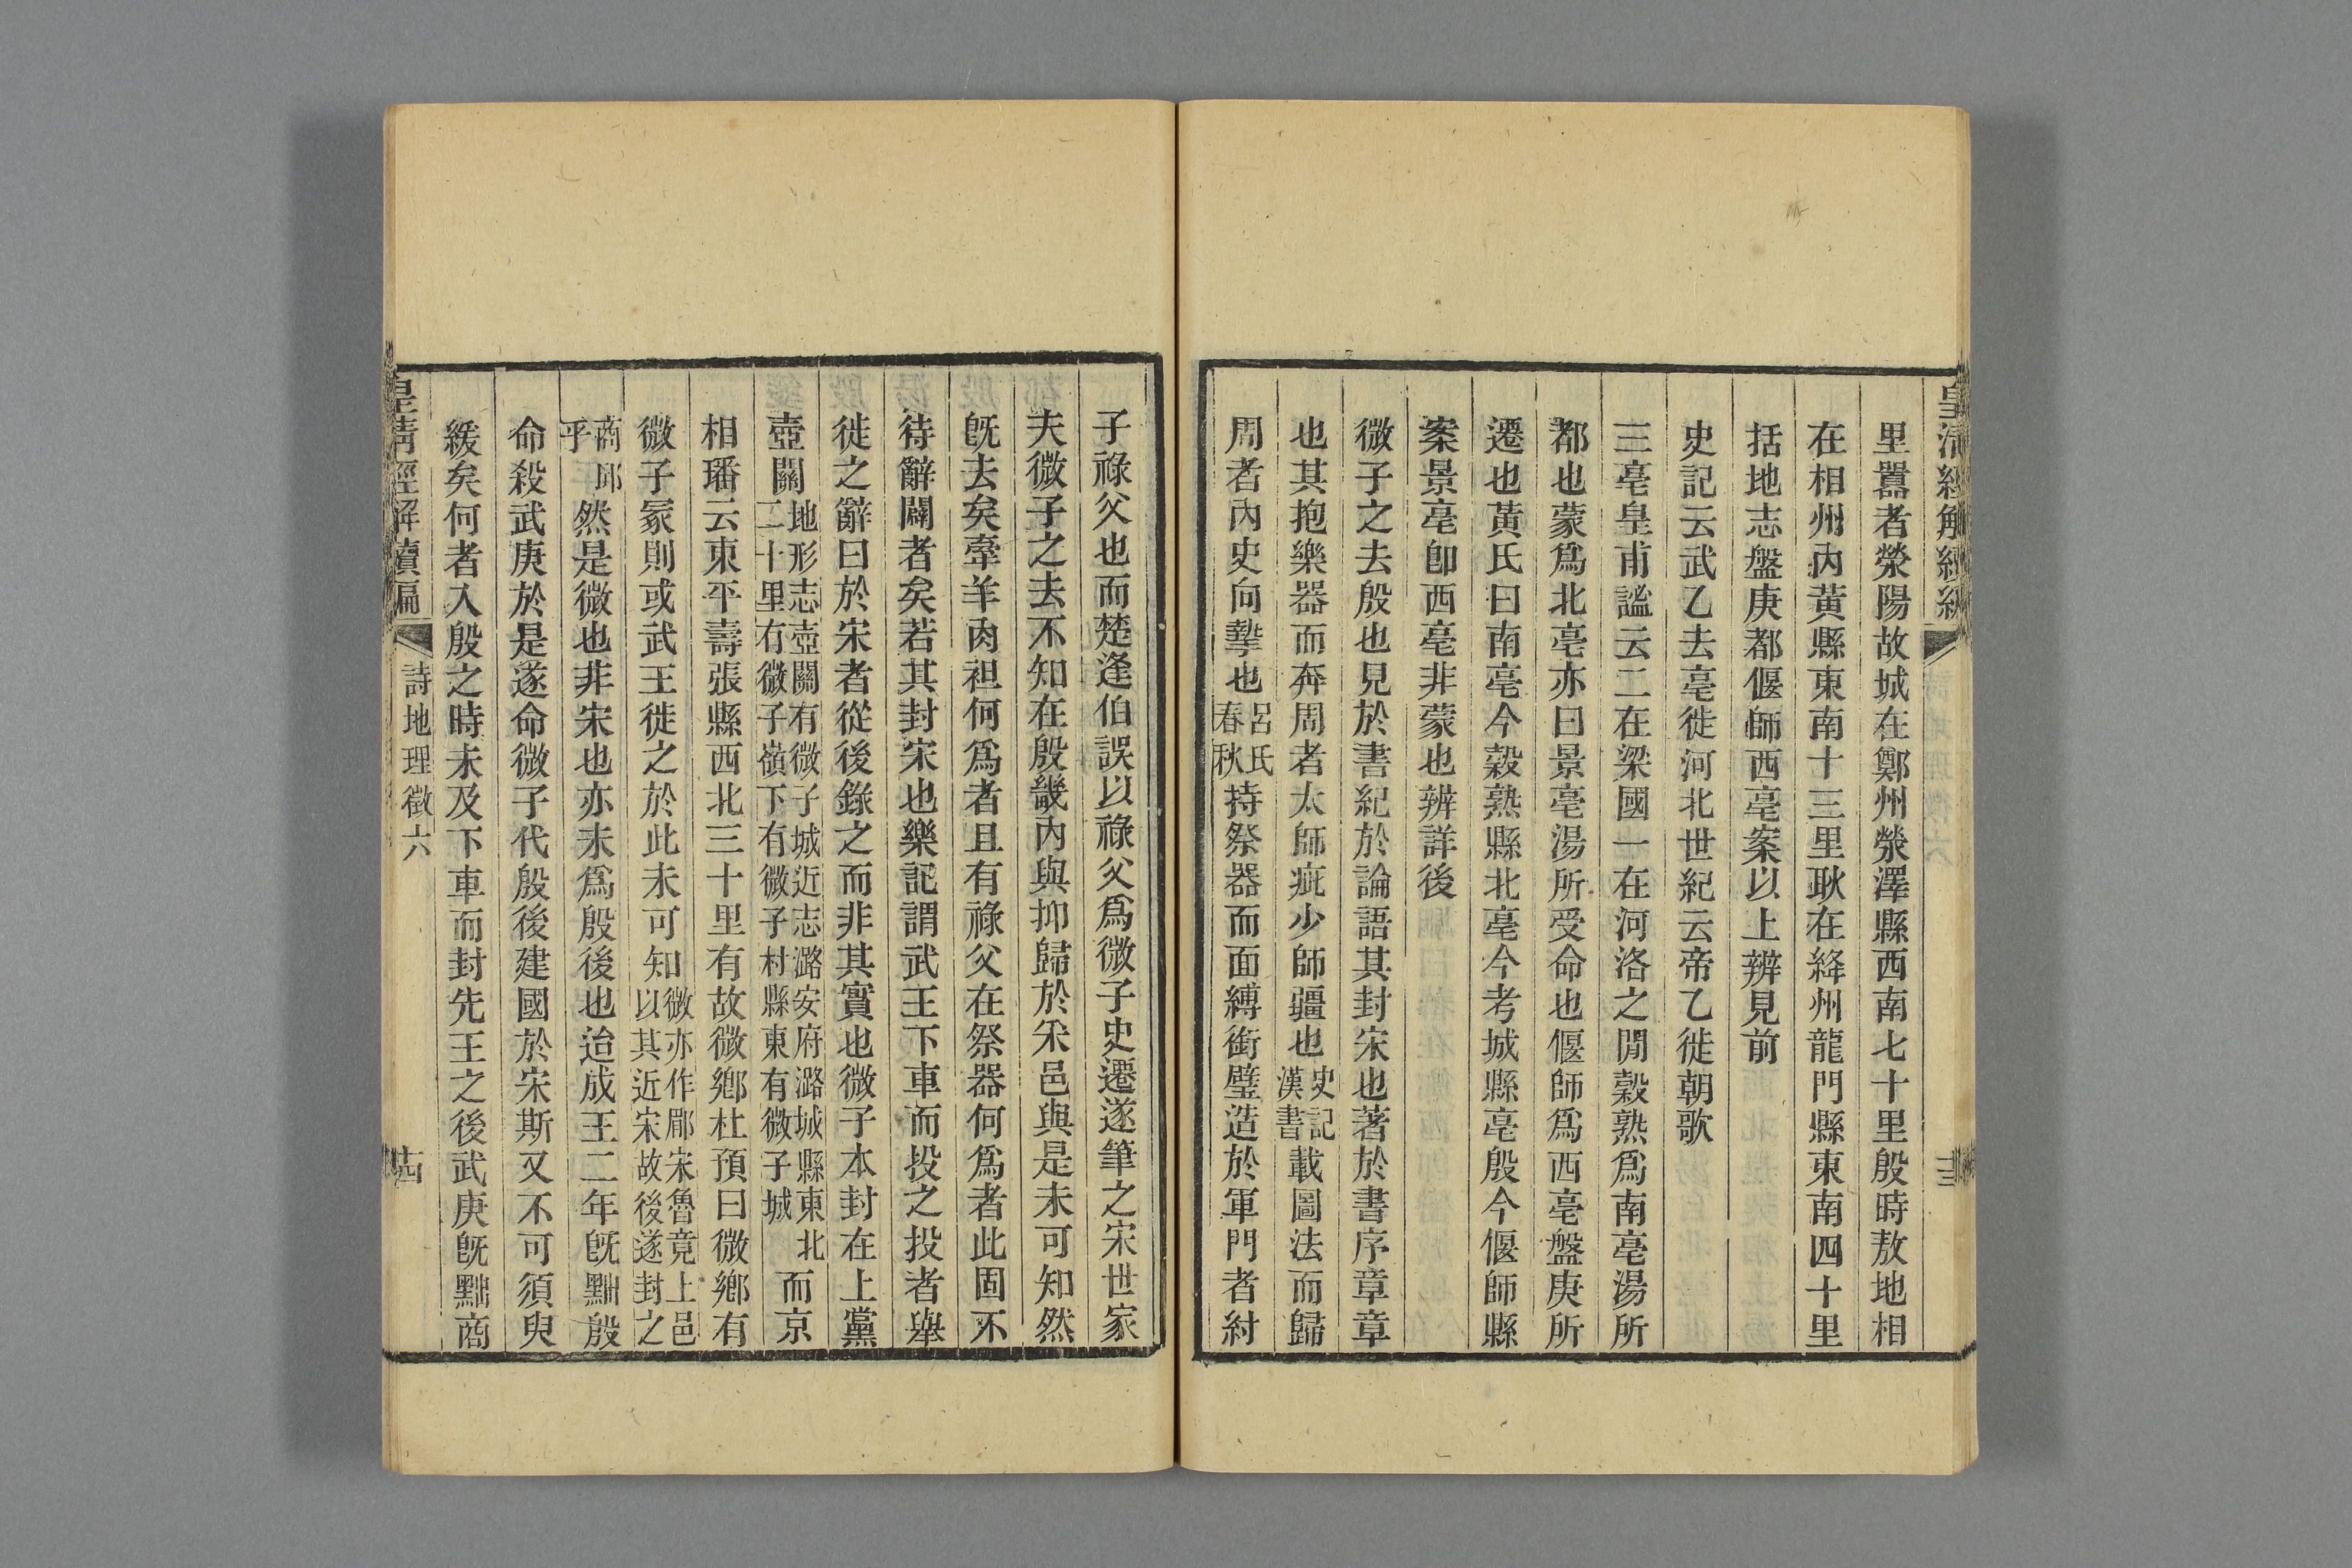 里囂者滎陽故城在鄭州滎澤縣西南七十里殷時敖地相
在相州內黃縣東南十三里耿在絳州龍門縣東南四十里
括地志盤庚都偃師西亳案以上辨見前
史記云武乙去亳徙河北世紀云帝乙徙朝歌
三亳皇甫謐云二在梁國一在河洛之閒穀熟爲南亳湯所
都也蒙爲北亳亦曰景亳湯所受命也偃師爲西亳盤庚所
遷也黃氏曰南亳今穀熟縣北亳今考城縣亳殷今偃師縣
案景亳卽西亳非蒙也辨詳後
微子之去殷也見於書紀於論語其封宋也著於書序章章
也其抱樂器而奔周者太師疵少師疆也史記漢書載圖法而歸
周者內史向摯也呂氏春秋持祭器而面縛銜璧造於軍門者紂
子祿父也而楚逢伯誤以祿父爲微子史遷遂筆之宋世家
夫微子之去不知在殷畿內與抑歸於采邑與是未可知然
旣去矣牽羊肉袒何爲者且有祿父在祭器何爲者此固不
待辭闢者矣若其封宋也樂記謂武王下車而投之投者舉
徙之辭曰於宋者從後錄之而非其實也微子本封在上黨
壺關地形志壺關有微子城近志潞安府潞城縣東北二十里有微子嶺下有微子村縣東有微子城而京
相璠云東平壽張縣西北三十里有故微鄉杜預曰微鄉有
微子冢則或武王徙之於此未可知微亦作郿宋魯竟上邑以其近宋故後遂封之
商邱乎然是微也非宋也亦未爲殷後也迨成王二年旣黜殷
命殺武庚於是遂命微子代殷後建國於宋斯又不可須臾
緩矣何者入殷之時未及下車而封先王之後武庚旣黜商
皇清經解續編 詩地理徵六 十四